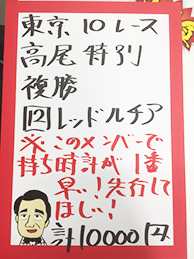 東京10レース
高尾特別
複勝
12 レッドルチア
※このメンバーで
持ち時計が1番
早い！先行して
ほしい！
計10000円